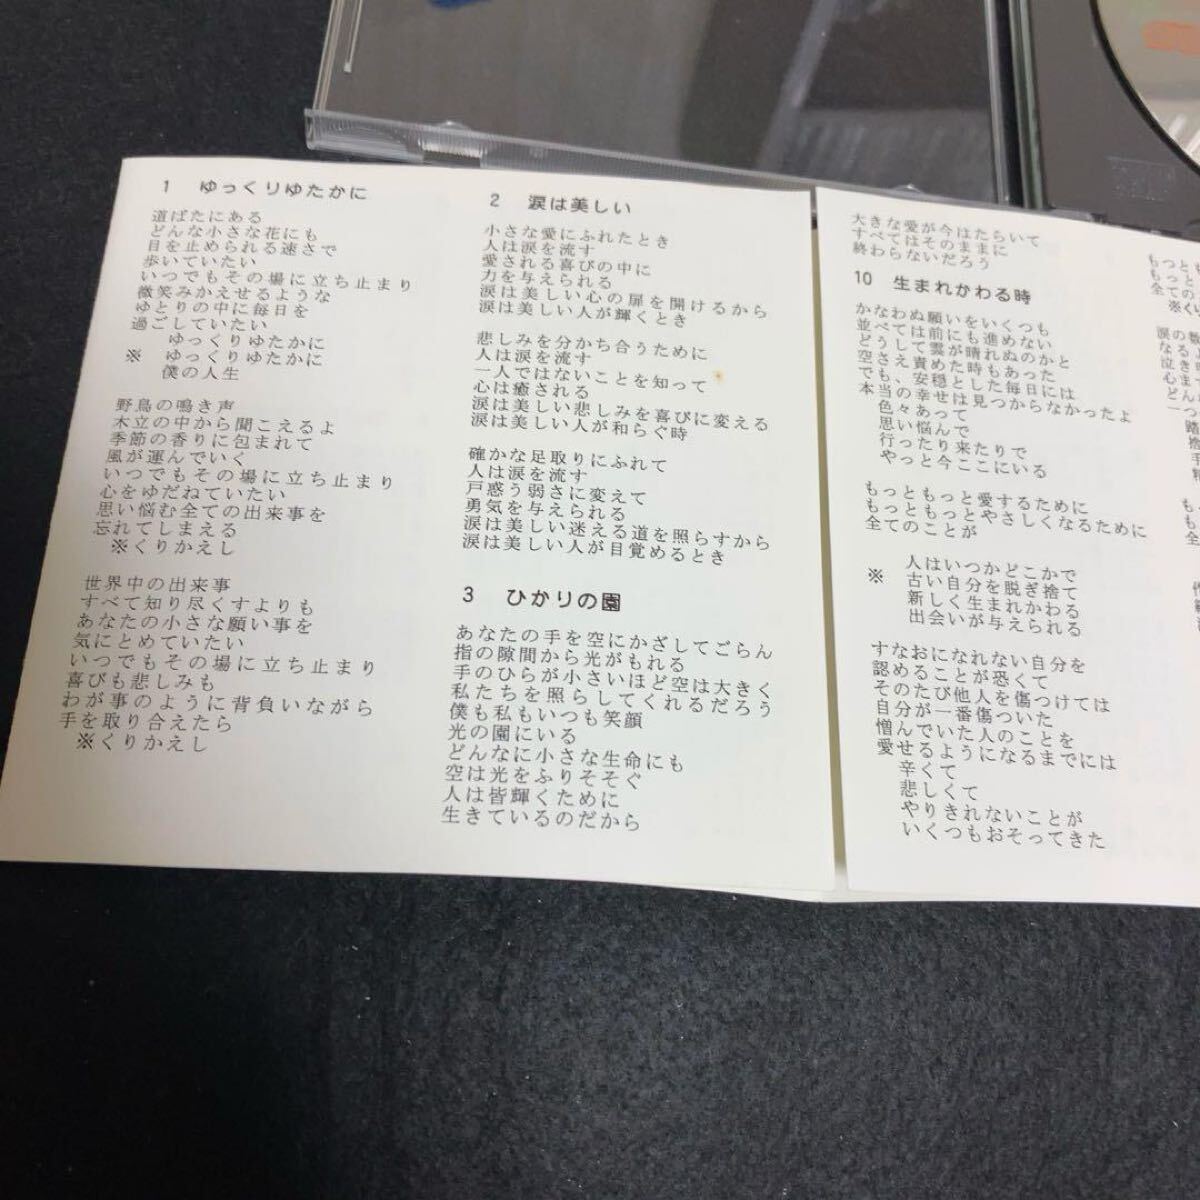 1 ゆっくりゆたかに
道ばたにある
どんな小さな花にも
目を止められる速さで
歩いていたい
いつでもその場に立ち止まり
微笑みかえせるような
ゆとりの中に毎日を
過ごしていたい
ゆっくりゆたかに
※ ゆっくりゆたかに
僕の人生
野鳥の鳴き声
木立の中から聞こえるよ
季節の香りに包まれて
風が運んでいく
いつでもその場に立ち止まり
心をゆだねていたい
思い悩む全ての出来事を
忘れてしまえる
※くりかえし
世界中の出来事
すべて知り尽くすよりも
あなたの小さな願い事を
気にとめていたい
いつでもその場に立ち止まり
喜びも悲しみも
わが事のように背負いながら
手を取り合えたら
※くりかえし
2 涙は美しい
小さな愛にふれたとき
人は涙を流す
愛される喜びの中に
力を与えられる
涙は美しい心の扉を開けるから
涙は美しい人が輝くとき
悲しみを分かち合うために
人は涙を流す
一人ではないことを知って
心は癒される
涙は美しい悲しみを喜びに変える
涙は美しい人が和らぐ時
確かな足取りにふれて
人は涙を流す
戸惑う弱さに変えて
勇気を与えられる
涙は美しい迷える道を照らすから
涙は美しい人が目覚めるとき
3 ひかりの園
あなたの手を空にかざしてごらん
指の隙間から光がもれる
手のひらが小さいほど空は大きく
私たちを照らしてくれるだろう
僕も私もいつも笑顔
光の園にいる
どんなに小さな生命にも
空は光をふりそそぐ
人は皆輝くために
生きているのだから
大きな愛が今はたらいて
すべてはそのままに
終わらないだろう
10 生まれかわる時
かなわぬ願いをいくつも
並べては前にも進めない
どうして雲が晴れぬのかと
空さえ責めた時もあった
でも、安穏とした毎日には
本当の幸せは見つからなかったよ
色々あって
思い悩んで
行ったり来たりで
やっと今ここにいる
もっともっと愛するために
もっともっとやさしくなるために
全てのことが
人はいつかどこかで
※ 古い自分を脱ぎ捨て
新しく生まれかわる
出会いが与えられる
すなおになれない自分を
認めることが恐くて
そのたび他人を傷つけては
自分が一番傷ついた
憎んでいた人のことを
愛せるようになるまでには
辛くて
悲しくて
やりきれないことが
いくつもおそってきた
もっとも
もっと
全ての
※く
涙の数
なる
泣き
心ま
どん
一つ